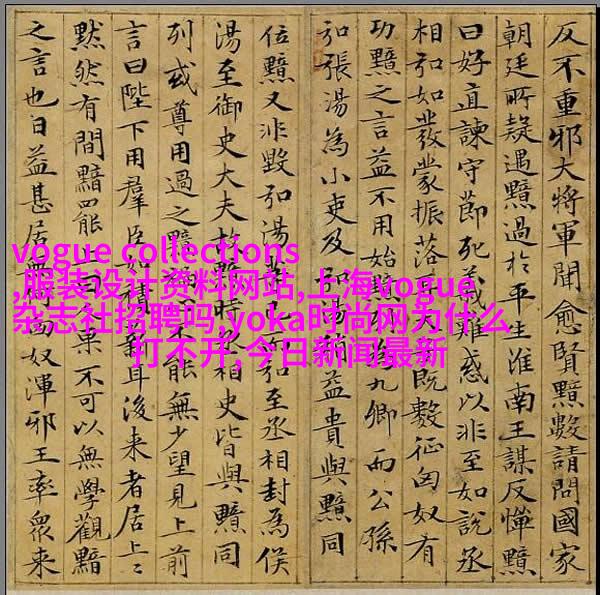 反不重邪大將軍聞愈賢黯數請問國家
朝廷所疑遇黯過於平生淮南王謀反憚黯
曰好直諫守節死義難惑以非至如說丞
相弘如發蒙振落既數征匈奴有
功黯之言益不用始黯九卿而公孫
弘張湯為小吏及弘湯稍益貴與黯同
位黯又非毀弘湯弘至丞相封為侯
湯至御史大夫故黯時丞相史皆與黯同
列或尊用過之黯不能無少望見上前
言曰陛下用羣臣積薪耳後來者居上上
黙然有間黯罷上曰人果不可以無學觀黯
之言也日益甚居無匈奴渾邪王率眾來
vogue collections
,服装设计资料网站,上海vogue
杂志社招聘吗,yoka时尚网为什么
打不开,今日新闻最新